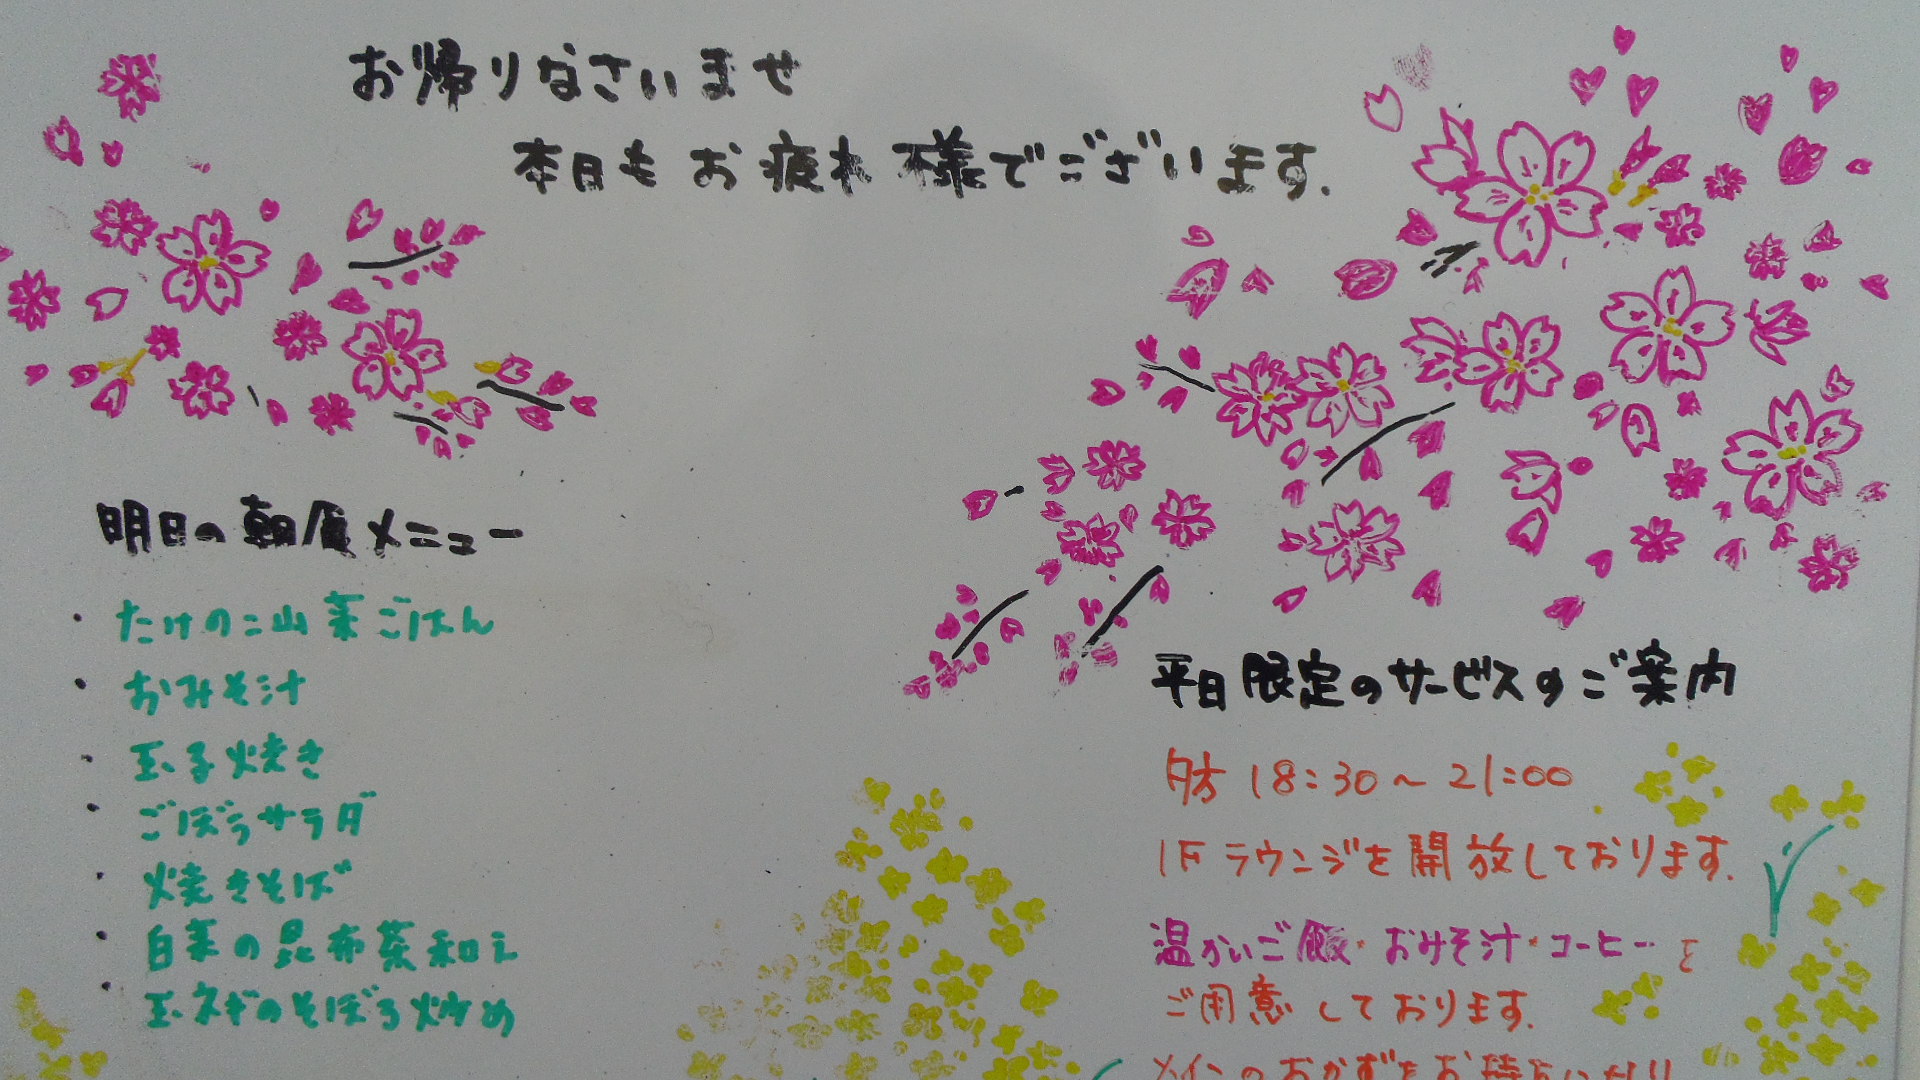 お帰りなさいませ
本日もお疲れ様でございます.
明日の朝食メニュー
・たけのこ山菜ごはん
・おみそ汁
・玉子焼き
・ごぼうサラダ
・焼きそば
・白菜の昆布茶和え
・玉ネギのそぼろ炒め
平日限定のサービスのご案内
夕方 18:30～21:00
1Fラウンジを開放しております.
温かいご飯・おみそ汁・コーヒーを
ご用意しております.
メインのおかずをお持ち